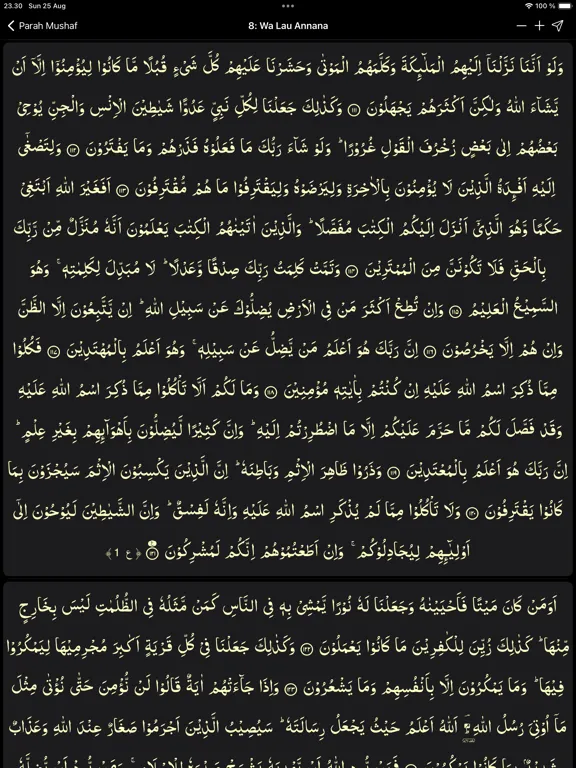 23.30 Sun 25 Aug
100 %
Parah Mushaf
8: Wa Lau Annana
وَلَوْ اَنَّنَا نَزَّلْنَاۤ اِلَيْهِمُ الْمَلٰٓٮِٕكَةَ وَكَلَّمَهُمُ الْمَوْتٰى وَحَشَرْنَا عَلَيْهِمْ كُلَّ شَىْءٍ قُبُلًا مَّا كَانُوْا لِيُؤْمِنُوْۤا اِلَّاۤ اَنْ
يَّشَآءَ اللّٰهُ وَلٰكِنَّ اَكْثَرَهُمْ يَجْهَلُوْنَ ﴿۱۱۱﴾ وَكَذٰلِكَ جَعَلْنَا لِكُلِّ نَبِىٍّ عَدُوًّا شَيٰطِيْنَ الْاِنْسِ وَالْجِنِّ يُوْحِىْ
بَعْضُهُمْ اِلٰى بَعْضٍ زُخْرُفَ الْقَوْلِ غُرُوْرًا ؕ وَلَوْ شَآءَ رَبُّكَ مَا فَعَلُوْهُ فَذَرْهُمْ وَمَا يَفْتَرُوْنَ ﴿۱۱۲﴾ وَلِتَصْغٰٓى
اِلَيْهِ اَفْـِٕدَةُ الَّذِيْنَ لَا يُؤْمِنُوْنَ بِالْاٰخِرَةِ وَلِيَرْضَوْهُ وَلِيَقْتَرِفُوْا مَا هُمْ مُّقْتَرِفُوْنَ ﴿۱۱۳﴾ اَفَغَيْرَ اللّٰهِ اَبْتَغِىْ
حَكَمًا وَّهُوَ الَّذِىْۤ اَنْزَلَ اِلَيْكُمُ الْكِتٰبَ مُفَصَّلًا ؕ وَالَّذِيْنَ اٰتَيْنٰهُمُ الْكِتٰبَ يَعْلَمُوْنَ اَنَّهٗ مُنَزَّلٌ مِّنْ رَّبِّكَ
بِالْحَـقِّ فَلَا تَكُوْنَنَّ مِنَ الْمُمْتَرِيْنَ ﴿۱۱۴﴾ وَتَمَّتْ كَلِمَتُ رَبِّكَ صِدْقًا وَّعَدْلًا ؕ لَا مُبَدِّلَ لِكَلِمٰتِهٖ ۚ وَهُوَ
السَّمِيْعُ الْعَلِيْمُ ﴿۱۱۵﴾ وَاِنْ تُطِعْ اَكْثَرَ مَنْ فِى الْاَرْضِ يُضِلُّوْكَ عَنْ سَبِيْلِ اللّٰهِ ؕ اِنْ يَّتَّبِعُوْنَ اِلَّا الظَّنَّ
وَاِنْ هُمْ اِلَّا يَخْرُصُوْنَ ﴿۱۱۶﴾ اِنَّ رَبَّكَ هُوَ اَعْلَمُ مَنْ يَّضِلُّ عَنْ سَبِيْلِهٖ ۚ وَهُوَ اَعْلَمُ بِالْمُهْتَدِيْنَ ﴿۱۱۷﴾ فَـكُلُوْا
مِمَّا ذُكِرَ اسْمُ اللّٰهِ عَلَيْهِ اِنْ كُنْتُمْ بِاٰيٰتِهٖ مُؤْمِنِيْنَ ﴿۱۱۸﴾ وَمَا لَكُمْ اَلَّا تَاْكُلُوْا مِمَّا ذُكِرَ اسْمُ اللّٰهِ عَلَيْهِ
وَقَدْ فَصَّلَ لَكُمْ مَّا حَرَّمَ عَلَيْكُمْ اِلَّا مَا اضْطُرِرْتُمْ اِلَيْهِ ؕ وَاِنَّ كَثِيْرًا لَّيُضِلُّوْنَ بِاَهْوَآٮِٕهِمْ بِغَيْرِ عِلْمٍ ؕ
اِنَّ رَبَّكَ هُوَ اَعْلَمُ بِالْمُعْتَدِيْنَ ﴿۱۱۹﴾ وَذَرُوْا ظَاهِرَ الْاِثْمِ وَبَاطِنَهٗ ؕ اِنَّ الَّذِيْنَ يَكْسِبُوْنَ الْاِثْمَ سَيُجْزَوْنَ بِمَا
كَانُوْا يَقْتَرِفُوْنَ ﴿۱۲۰﴾ وَلَا تَاْكُلُوْا مِمَّا لَمْ يُذْكَرِ اسْمُ اللّٰهِ عَلَيْهِ وَاِنَّهٗ لَفِسْقٌ ؕ وَاِنَّ الشَّيٰطِيْنَ لَيُوْحُوْنَ اِلٰٓى
اَوْلِيٰٓـٮِٕهِمْ لِيُجَادِلُوْكُمْ ۚ وَاِنْ اَطَعْتُمُوْهُمْ اِنَّكُمْ لَمُشْرِكُوْنَ ﴿۱۲۱﴾ ﴿ ع 1 ﴾
اَوَمَنْ كَانَ مَيْتًا فَاَحْيَيْنٰهُ وَجَعَلْنَا لَهٗ نُوْرًا يَّمْشِىْ بِهٖ فِى النَّاسِ كَمَنْ مَّثَلُهٗ فِى الظُّلُمٰتِ لَيْسَ بِخَارِجٍ
مِّنْهَا ؕ كَذٰلِكَ زُيِّنَ لِلْكٰفِرِيْنَ مَا كَانُوْا يَعْمَلُوْنَ ﴿۱۲۲﴾ وَكَذٰلِكَ جَعَلْنَا فِىْ كُلِّ قَرْيَةٍ اَكٰبِرَ مُجْرِمِيْهَا لِيَمْكُرُوْا
فِيْهَا ؕ وَمَا يَمْكُرُوْنَ اِلَّا بِاَنْفُسِهِمْ وَمَا يَشْعُرُوْنَ ﴿۱۲۳﴾ وَاِذَا جَآءَتْهُمْ اٰيَةٌ قَالُوْا لَنْ نُّؤْمِنَ حَتّٰى نُؤْتٰى مِثْلَ
مَاۤ اُوْتِىَ رُسُلُ اللّٰهِ ؔۘ اَللّٰهُ اَعْلَمُ حَيْثُ يَجْعَلُ رِسَالَتَهٗ ؕ سَيُصِيْبُ الَّذِيْنَ اَجْرَمُوْا صَغَارٌ عِنْدَ اللّٰهِ وَعَذَابٌ